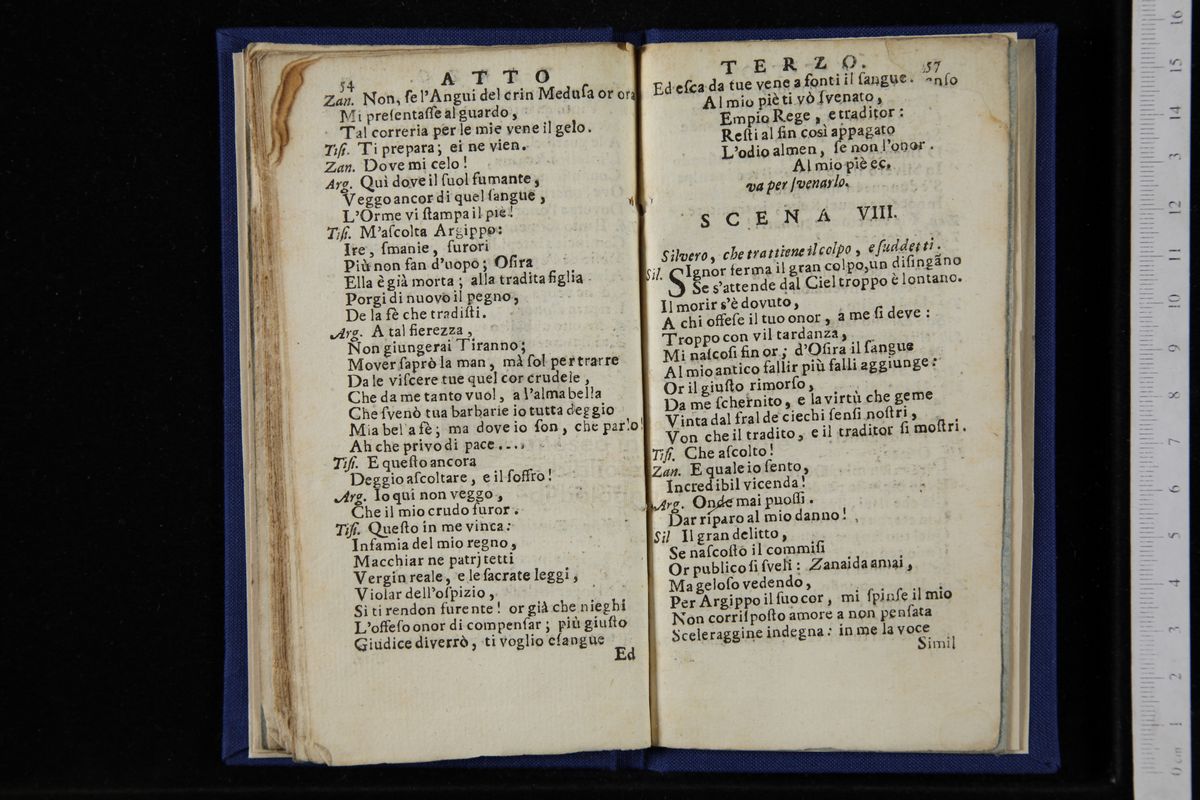 54 ATTO
Zan. Non, ſe l'Angui del crin Meduſa or ora
Mi preſentaſſe al guardo,
Tal correria per le mie vene il gelo.
Tiſi. Ti prepara; ei ne vien.
Zan. Dove mi celo!
Arg. Quì dove il ſuol fumante,
Veggo ancor di quel ſangue,
L'Orme vi ſtampa il piè!
Tiſi. M'aſcolta Argippo:
Ire, ſmanie, furori
Più non fan d'uopo; Oſira
Ella è già morta; alla tradita figlia
Porgi di nuovo il pegno,
De la fè che tradiſti.
Arg. A tal fierezza,
Non giungerai Tiranno;
Mover ſaprò la man, mà ſol per trarre
Da le viſcere tue quel cor crudele,
Che da me tanto vuol, a l'alma bella
Che ſvenò tua barbarie io tutta deggio
Mia bel a fè; ma dove io ſon, che parlo!
Ah che privo di pace....
Tiſi. E queſto ancora
Deggio aſcoltare, e il ſoffro!
Arg. Io qui non veggo,
Che il mio crudo furor.
Tiſi. Queſto in me vinca:
Infamia del mio regno,
Macchiar ne patrj tetti
Vergin reale, e le ſacrate leggi,
Violar dell'oſpizio,
Sì ti rendon furente! or già che nieghi
L'offeſo onor di compenſar; più giuſto
Giudice diverrò, ti voglio eſangue
Ed
TERZO. 57
Ed eſca da tue vene a fonti il ſangue.
Al mio piè ti vò ſvenato,
Empio Rege, e traditor:
Reſti al fin così appagato
L'odio almen, ſe non l'onor.
Al mio piè ec.
va per ſvenarlo.
SCENA VIII.
Silvero, che trattiene il colpo, e ſuddetti.
Sil. SIgnor ferma il gran colpo, un diſingãno
Se s'attende dal Ciel troppo è lontano.
Il morir s'è dovuto,
A chi offeſe il tuo onor, a me ſi deve:
Troppo con vil tardanza,
Mi naſcoſi fin or; d'Oſira il ſangue
Al mio antico fallir più falli aggiunge:
Or il giuſto rimorſo,
Da me ſchernito, e la virtù che geme
Vinta dal fral de ciechi ſenſi noſtri,
Von che il tradito, e il traditor ſi moſtri.
Tiſi. Che aſcolto!
Zan. E quale io ſento,
Incredibil vicenda!
Arg. Onde mai puoſſi.
Dar riparo al mio danno!
Sil Il gran delitto,
Se naſcoſto il commiſi
Or publico ſi ſveli: Zanaida amai,
Ma geloſo vedendo,
Per Argippo il ſuo cor, mi ſpinſe il mio
Non corriſpoſto amore a non penſata
Sceleraggine indegna: in me la voce
Simil
0 cm 1 2 3 4 5 6 7 8 9 10 11 12 13 14 15 16